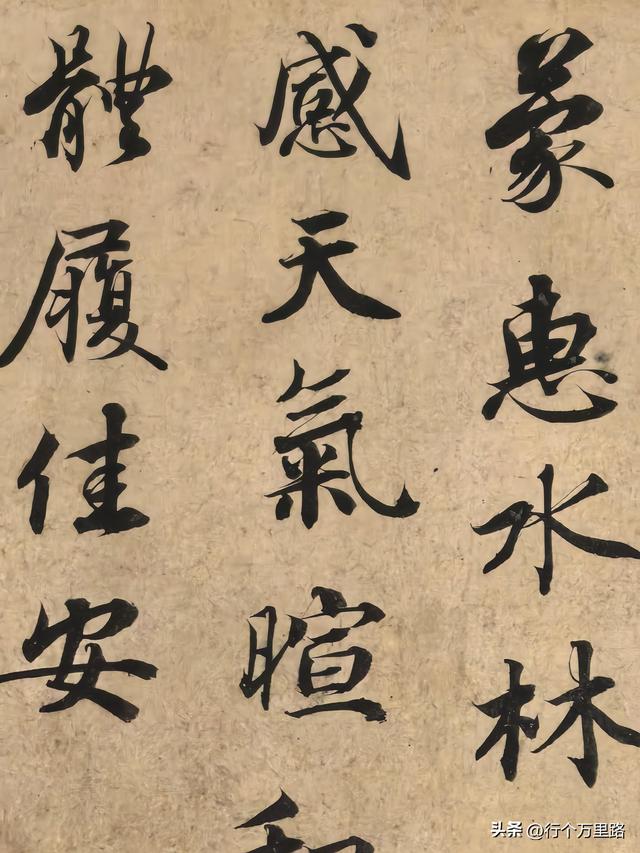 蒙惠水林
感天氣暄和
體履佳安
头条@行个万里路